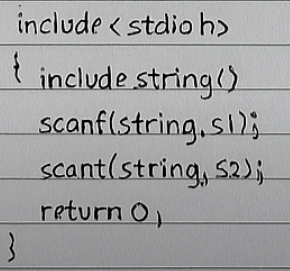 include <stdio h>
{ include string()
scanf(string, s1);
scant(string, s2);
return 0,
}